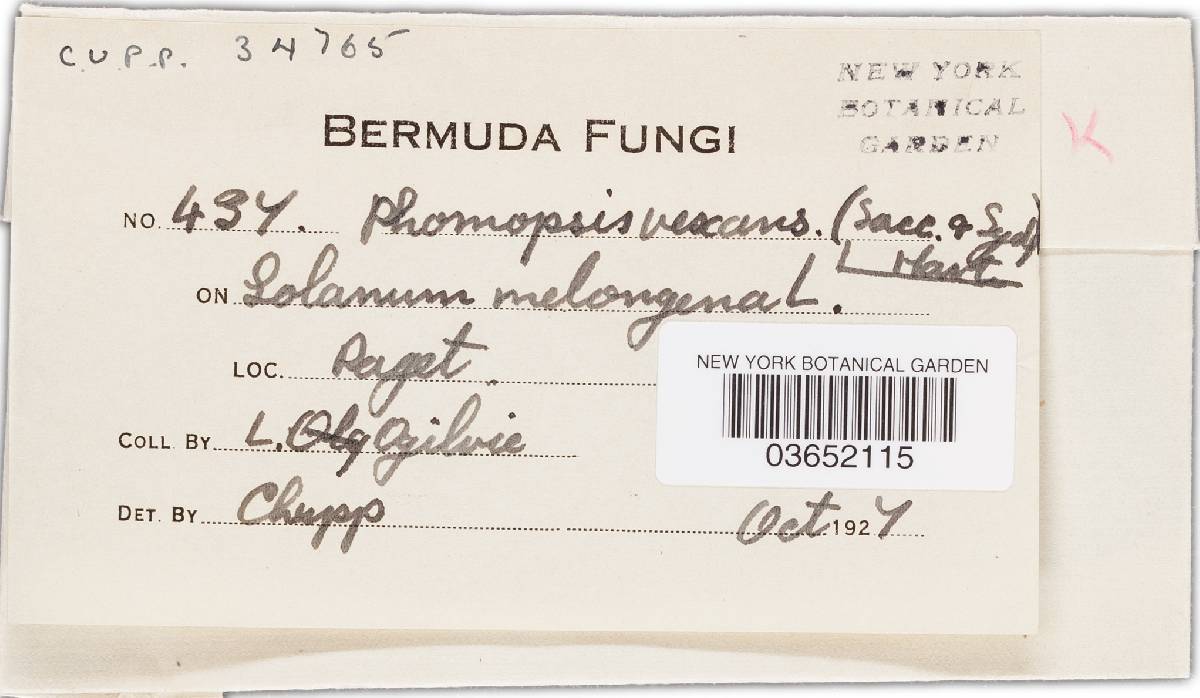 C.U.P.P. 34765
NEW YORK
BOTANICAL
GARDEN
K
BERMUDA FUNGI
NO. 437. Phomopsis vexans. (Sacc. & Syd)
Hart
ON Solanum melongena L.
LOC. Paget.
COLL. BY L. Ogilvie
DET. BY Chupp Oct 1927
NEW YORK BOTANICAL GARDEN
03652115